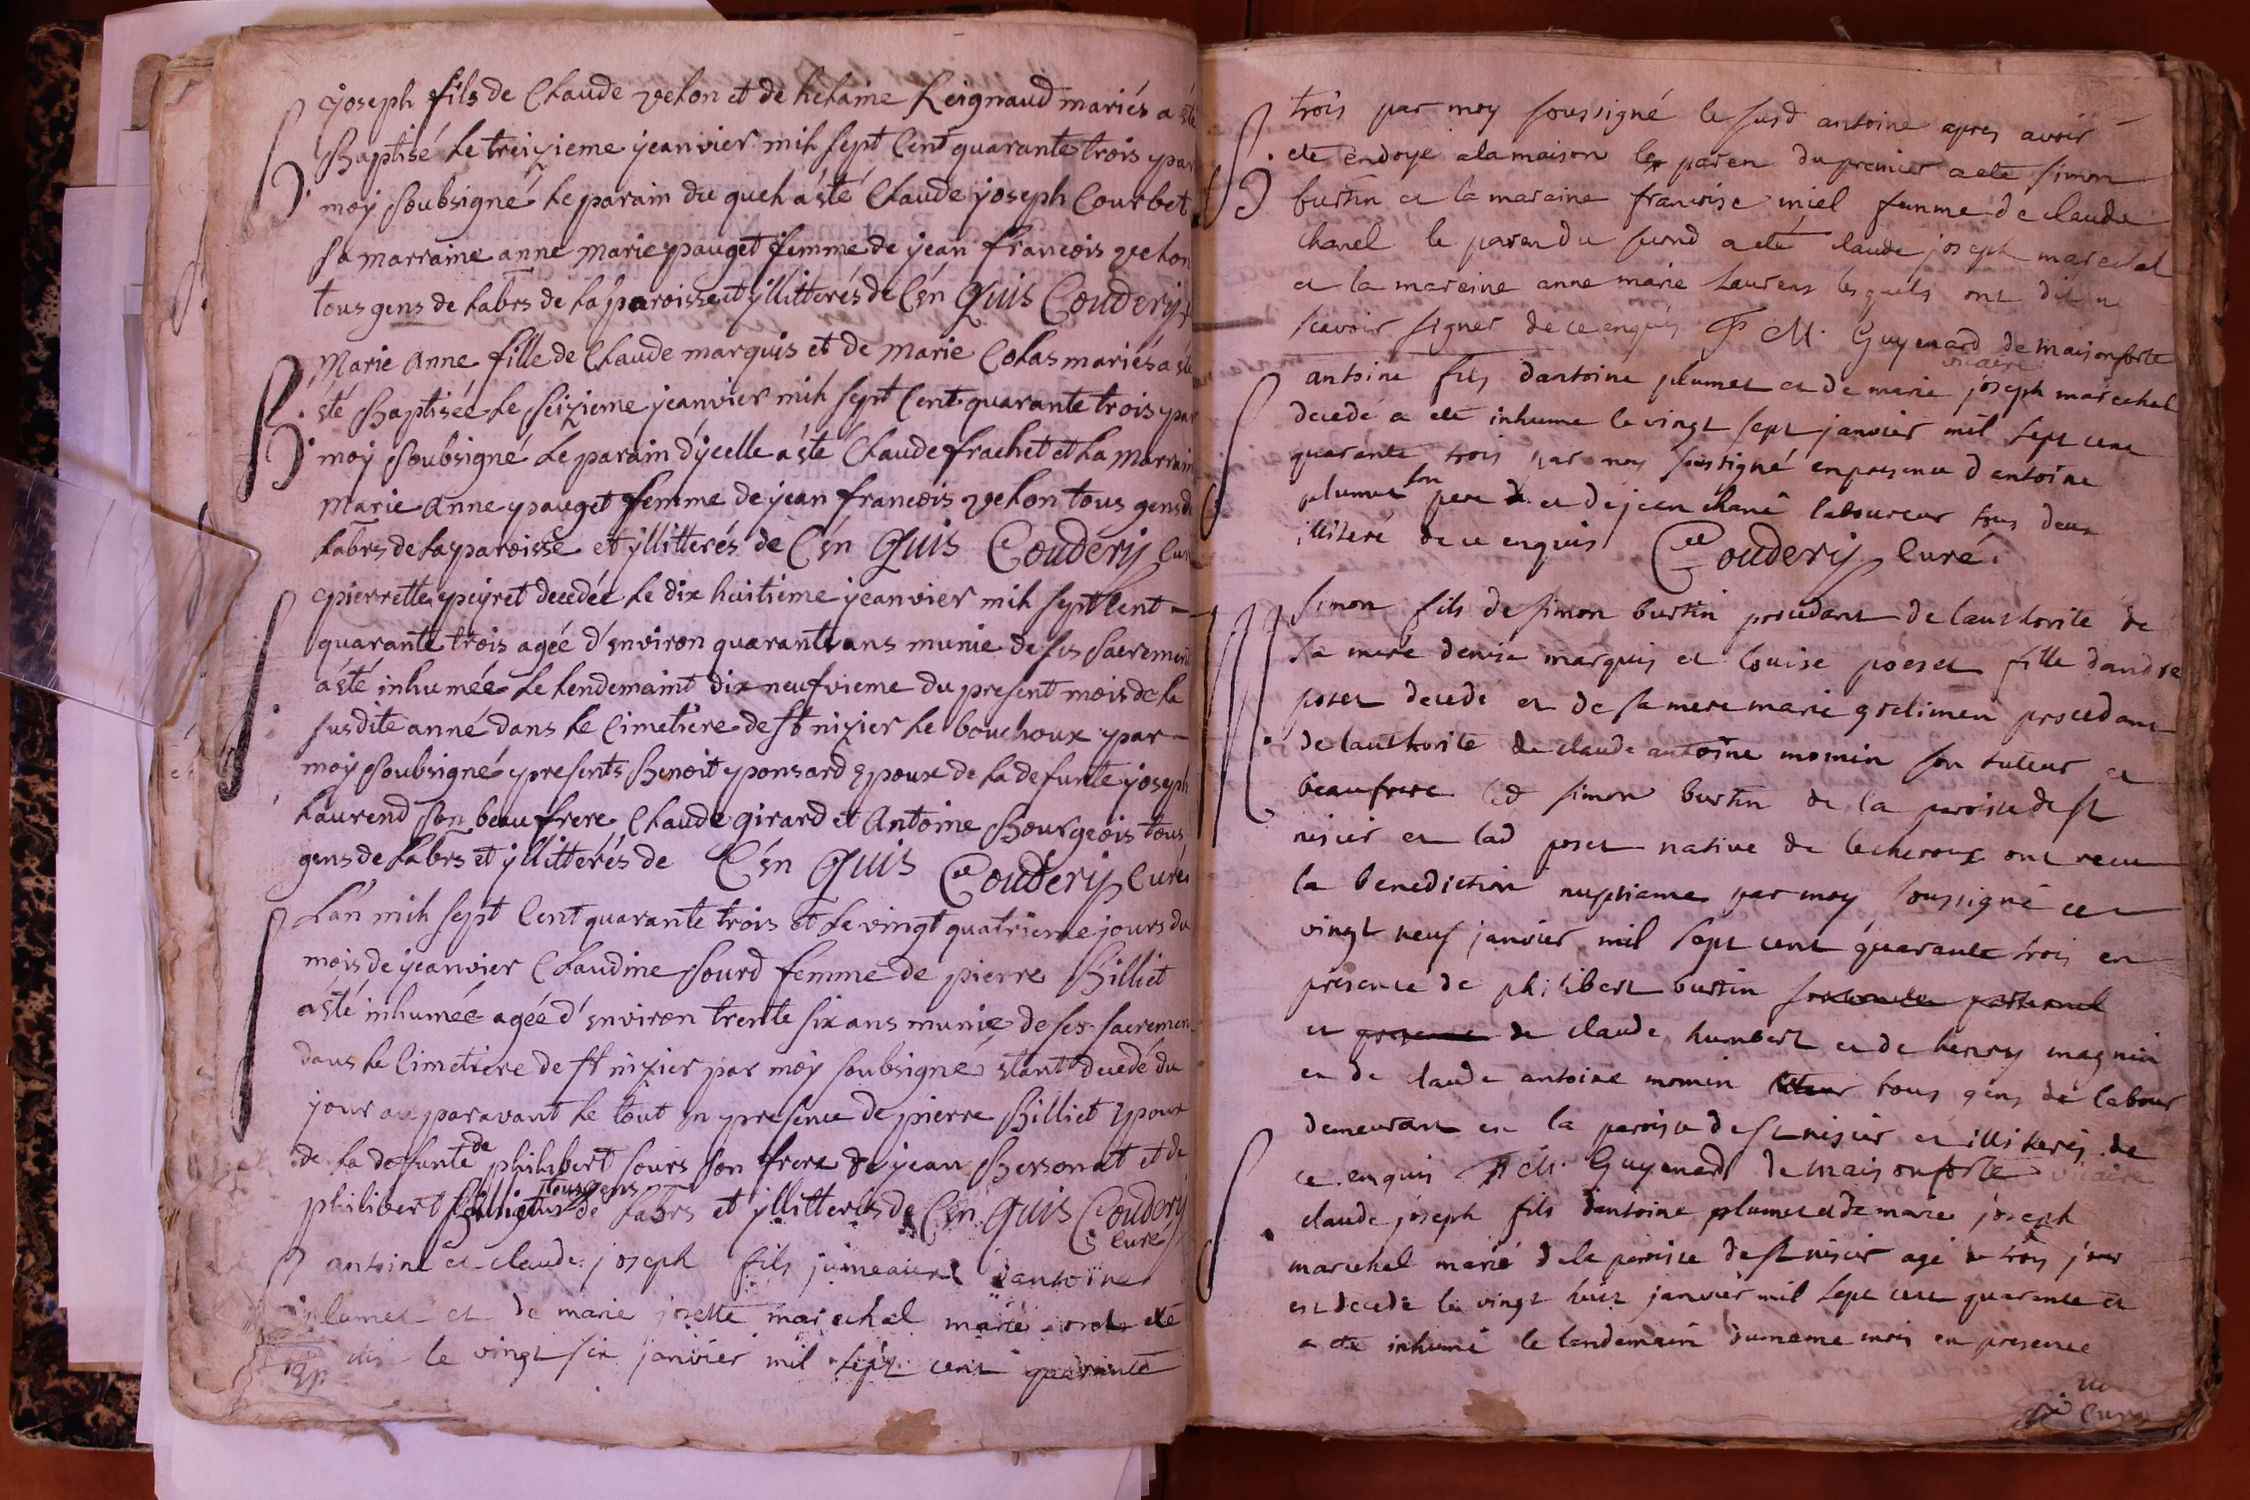 joseph fils de Claude velon et de helaine Reignaud mariés a été
Baptisé le treizieme jeanvier mil sept Cent quarante trois par
moy soubsigné le parain du quel a été Claude joseph Courbet
sa marraine anne marie pauget femme de jean francois velon
tous gens de labrs de la paroisse et yllitterés de C én quis Coudery
Marie Anne fille de Claude marquis et de Marie Colas mariés a été
été Baptisée le seizieme jeanvier mil sept Cent quarante trois par
moy soubsigné le parain d'ycelle a été Claude frachet et la marraine
Marie Anne pauget femme de jean francois velon tous gens de
labrs de la paroisse et yllitterés de C én quis Coudery Curé
pierrette peyret decedée le dix huitieme jeanvier mil sept Cent
quarante trois agée d'environ quarante ans munie de ses sacrement
a été inhumée le lendemaint dix neufvieme du present mois de la
susdite anné dans le Cimetiere de st nizier le bouchoux par
moy soubsigné presents Benoit ponsard Epoux de la defunte joseph
Laurend son beaufrere Claude girard et Antoine Bourgeois tous
gens de labrs et yllitterés de C én quis Coudery Curé
L'an mil sept Cent quarante trois et le vingt quatrieme jours du
mois de jeanvier Claudine Sourd femme de pierre Billiet
a été inhumée agée d'environ trente six ans munie de ses sacremen
dans le Cimetiere de st nizier par moy soubsigné étant decedé du
jour au paravant le tout en presence de pierre Billiet Epoux
de la defunte de philibert sours son frere de jean Bersonat et de
philibert Billiet tous gens de labrs et yllitterés de C én quis Coudery
Curé
antoine et claude joseph fils jumeaux d'antoine
plumet et de marie josette marechal marié ont eté
le vingt six janvier mil sept cent quarante
trois par moy soussigné le susd antoine apres avoir
eté endoyé a la maison le paren du premier a eté simon
burtin et la maraine francoise miel femme de claude
chanel le paren du second a eté claude joseph marechal
et la mareine anne marie Laurens lesquels ont dit ne
scavoir signer de ce enquis F M. Guyenard de maisonforte
vicaire
antoine fils d'antoine plumet et de marie joseph marechal
decedé a eté inhume le vingt sept janvier mil sept cent
quarante trois par moy soussigné en presence d'antoine
plumet son pere et de jean chanê laboureur tous deux
illiteré de ce enquis Coudery Curé.
Simon fils de simon burtin procedant de l'authorité de
sa mere denise marquis et louise poeset fille d'andre
poset decedé et de sa mere marie grelimen procedant
de l'authorité de claude antoine momin son tuteur et
beaufrere led simon burtin de la paroisse de st
nisier et lad poset native de lecheroux ont recu
la benediction nuptiame par moy soussigné ce
vingt neuf janvier mil sept cent quarante trois en
presence de philibert burtin
et de claude humbert et de henry magnin
et de claude antoine momin tous gens de labour
demeurant en la paroisse de st nisier et illiterés de
ce enquis F M. Guyenard de maisonforte vicaire
claude joseph fils d'antoine plumet et de marie joseph
marechal marié de la paroisse de st nisier agé de trois jour
est decedé le vingt huit janvier mil sept cent quarante et
a eté inhumé le lendemain du meme mois en presence